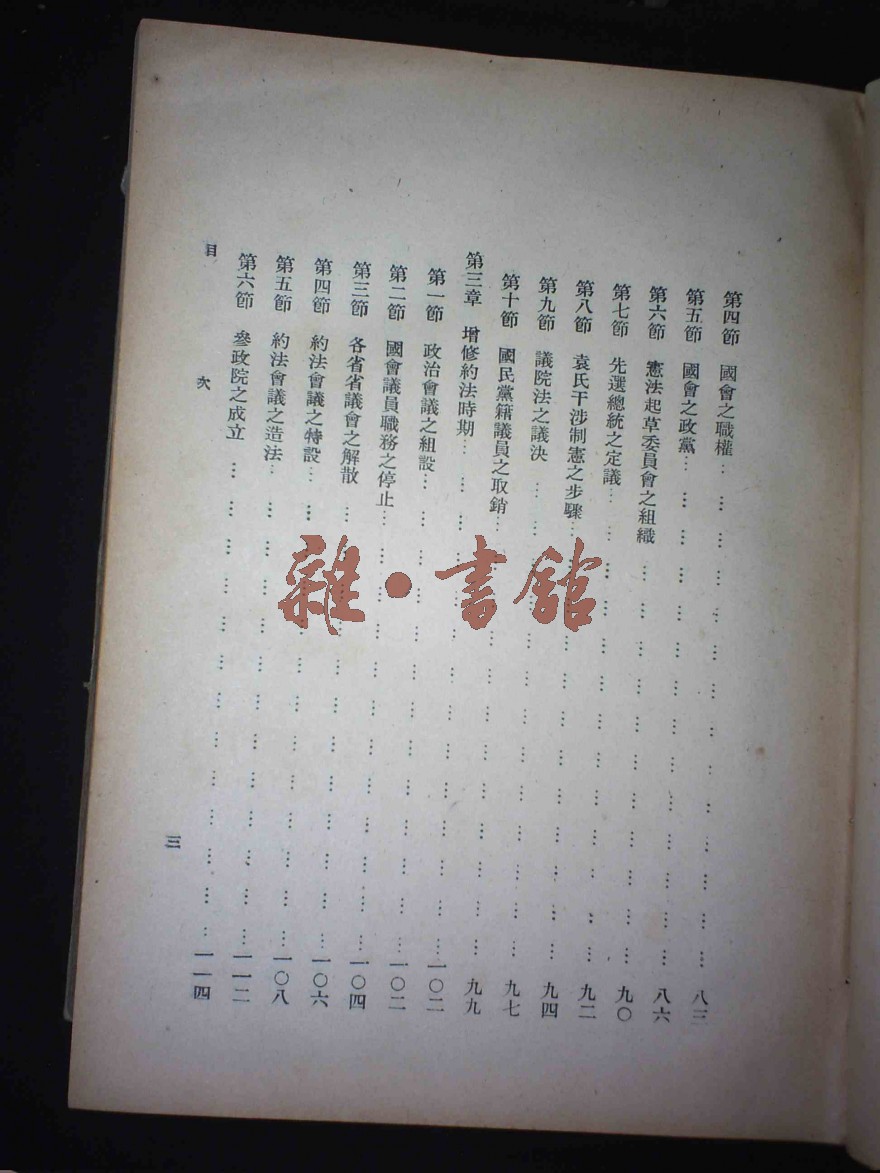 第四節 國會之職權………………八三
第五節 國會之政黨………………八六
第六節 憲法起草委員會之組織………………九〇
第七節 先選總統之定議………………九二
第八節 袁氏干涉制憲之步驟………………九四
第九節 議院法之議決………………九七
第十節 國民黨籍議員之取銷………………九九
第三章 增修約法時期………………一〇二
第一節 政治會議之組設………………一〇二
第二節 國會議員職務之停止………………一〇四
第三節 各省省議會之解散………………一〇六
第四節 約法會議之特設………………一〇八
第五節 約法會議之造法………………一一二
第六節 參政院之成立………………一一四
目 次
三
雜·書館